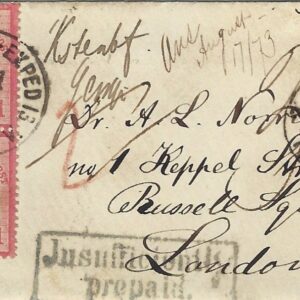 EXPED
Ans
August
17/73
2
Dr. A. L. Norr
no 1 Keppel St
Russell Sq
London
Insufficiently
prepaid.